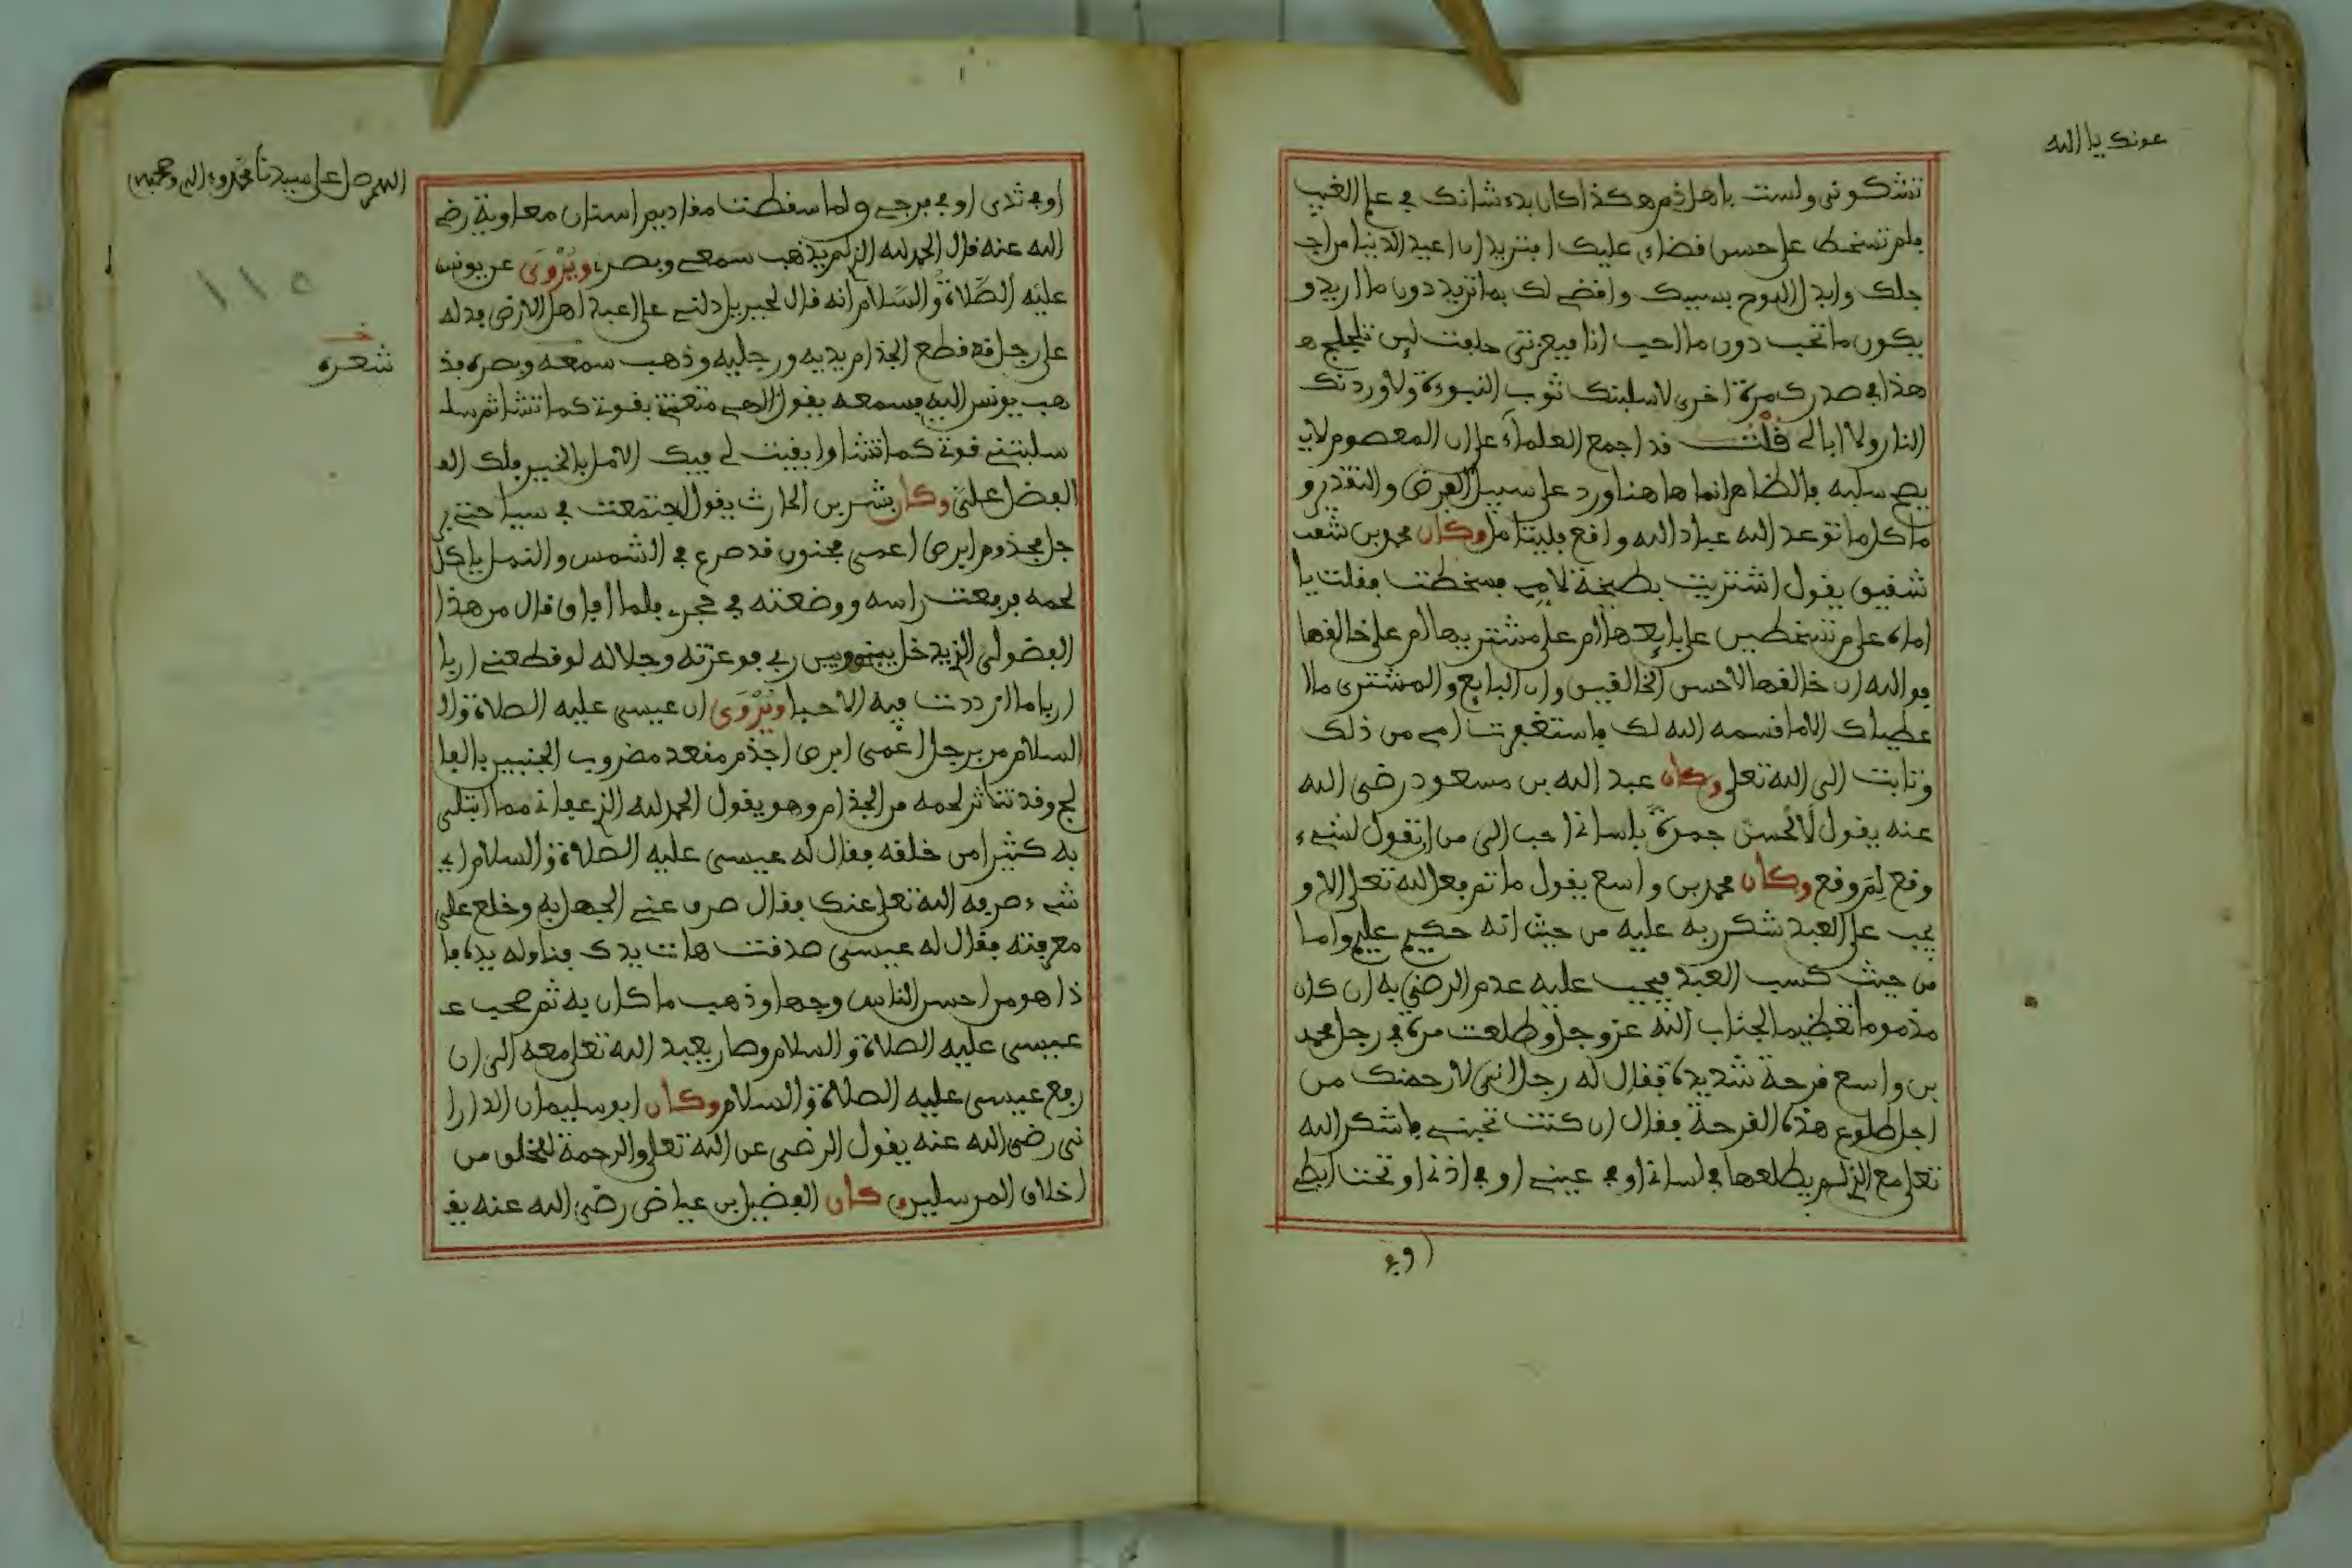 عونك يا الله
تشكونى ولست باهل ذم هكذا كان بدء شانك في علم الغيب
فلم تسخط على حسن فضاءى عليك افتريد ان اعيد الدنيا من اجـ
جلك وابدل اللوح بسببك وافضى لك بما تريد دون ما اريد و
يكون ما تحب دون ما احب انا فبعزتى حلفت لين تلجلج هـ
هذا في صدرك مرة اخرى لاسلبنك ثوب النبوءة ولاوردنك
النار ولا ابالى قلت قد اجمع العلماء على ان المعصوم لايـ
يصح سلبه بالظاهر انما هاهنا ورد على سبيل الفرض والتقدير و
ما كل ما توعد الله عباد الله واقع فليتامل وكان محمد بن شقيـ
شقيق يقول اشتريت بطيخة لامى فسخطت فقلت يا
اماه على من تسخطين على بايعها ام على مشتريها ام على خالقها
فوالله ان خالقها لاحسن الخالقين وان البايع والمشترى ما ا
عطياك الا ما قسمه الله لك فاستغفرت امى من ذلك
وتابت الى الله تعلى وكان عبد الله بن مسعود رضى الله
عنه يقول لالحسن جمرة بلسانى احب الى من ان نقول لشىء
وقع لم وقع وكان محمد بن واسع يقول ما تم فعل لله تعلى الا و
يجب على العبد شكر ربه عليه من حيث انه حكيم عليم واما
من حيث كسب العبد فيجب عليه عدم الرضى به ان كان
مذموما تعظيما لجناب الله عز وجل وطلعت مرة في رجل محمد
بن واسع قرحة شديدة فقال له رجل انى لارحمنك من
اجل طلوع هذه القرحة فقال ان كنت تحبنى فاشكر الله
تعلى مع الذى لم يطلعها في لسانى او في عينى او في اذنى او تحت ابطى
او في
اللهم صل على سيدنا محمد وءاله وصحبه
او في ثدى او في فرجى ولما سقطت مقاديم اسنان معاوية رضى
الله عنه قال الحمد لله الذى لم يذهب سمعى وبصرى ويروى عن يونس
عليه الصلاة والسلام انه قال لجبريل دلنى على اعبد اهل الارض فدله
على رجل قد قطع الجذام يديه ورجليه وذهب سمعه وبصره فذ
هب يونس اليه فسمعه يقول الهى متعتنى بقوتى كما تشا ثم سلـ
سلبتنى قوتى كما تشا وابقيت لى فيك الامل بالخير فلك الفـ
الفضل على وكان بشر بن الحارث يقول اجتمعت في سياحتى بر
جل مجذوم ابرص اعمى مجنون قد صرع في الشمس والنمل ياكل
لحمه فرفعت راسه ووضعته في حجرى فلما افاق قال من هذا
الفضولى الذى يدخل بينى وبين ربى فوعزته وجلاله لو قطعنى اربا
اربا ما ازددت فيه الا حبا ويروى ان عيسى عليه الصلاة والـ
السلام مر برجل اعمى ابرص اجذم مقعد مضروب الجنبين بالفا
لج وقد تناثر لحمه من الجذام وهو يقول الحمد لله الذى عافانى مما ابتلى
به كثيرا من خلقه فقال له عيسى عليه الصلاة والسلام اى
شىء صرفه الله تعلى عنك فقال صرف عنى الجهل به وخلع على
معرفته فقال له عيسى صدقت هات يدك فناوله يده فا
ذا هو من احسن الناس وجها وذهب ما كان به ثم صحب عـ
عيسى عليه الصلاة والسلام وصار يعبد الله تعلى معه الى ان
رفع عيسى عليه الصلاة والسلام وكان ابو سليمان الدارا
نى رضى الله عنه يقول الرضى عن الله تعلى والرحمة للخلق من
اخلاق المرسلين وكان الفضيل بن عياض رضى الله عنه يقـ
١١٥
شعره